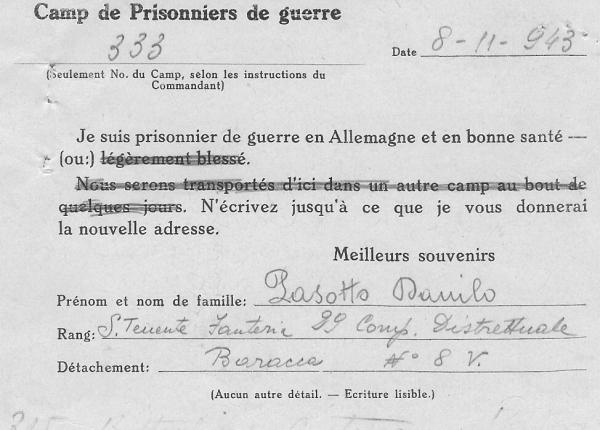 Camp de Prisonniers de guerre
333
Date 8-11-943
(Seulement No. du Camp, selon les instructions du
Commandant)
Je suis prisonnier de guerre en Allemagne et en bonne santé —
(ou:) légèrement blessé.
Nous serons transportés d'ici dans un autre camp au bout de
quelques jours. N'écrivez jusqu'à ce que je vous donnerai
la nouvelle adresse.
Meilleurs souvenirs
Prénom et nom de famille: Pasotto Danilo
Rang: S. Tenente Fanteria 99 Comp. Distrettuale
Détachement: Baracca N° 8 V.
(Aucun autre détail. — Ecriture lisible.)